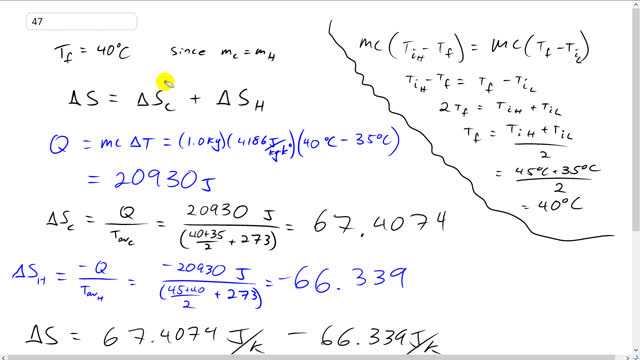 47
T_f = 40°C since m_c = m_H
ΔS = ΔS_C + ΔS_H
Q = mc ΔT = (1.0 kg)(4186 J/kg K°)(40°C − 35°C)
= 20930 J
ΔS_C = Q/T_avC = 20930 J/((40+35)/2 + 273) = 67.4074
ΔS_H = −Q/T_avH = −20930 J/((45+40)/2 + 273) = −66.339
ΔS = 67.4074 J/K − 66.339 J/K
mc(T_iH − T_f) = mc(T_f − T_iL)
T_iH − T_f = T_f − T_iL
2T_f = T_iH + T_iL
T_f = (T_iH + T_iL)/2
= (45°C + 35°C)/2
= 40°C